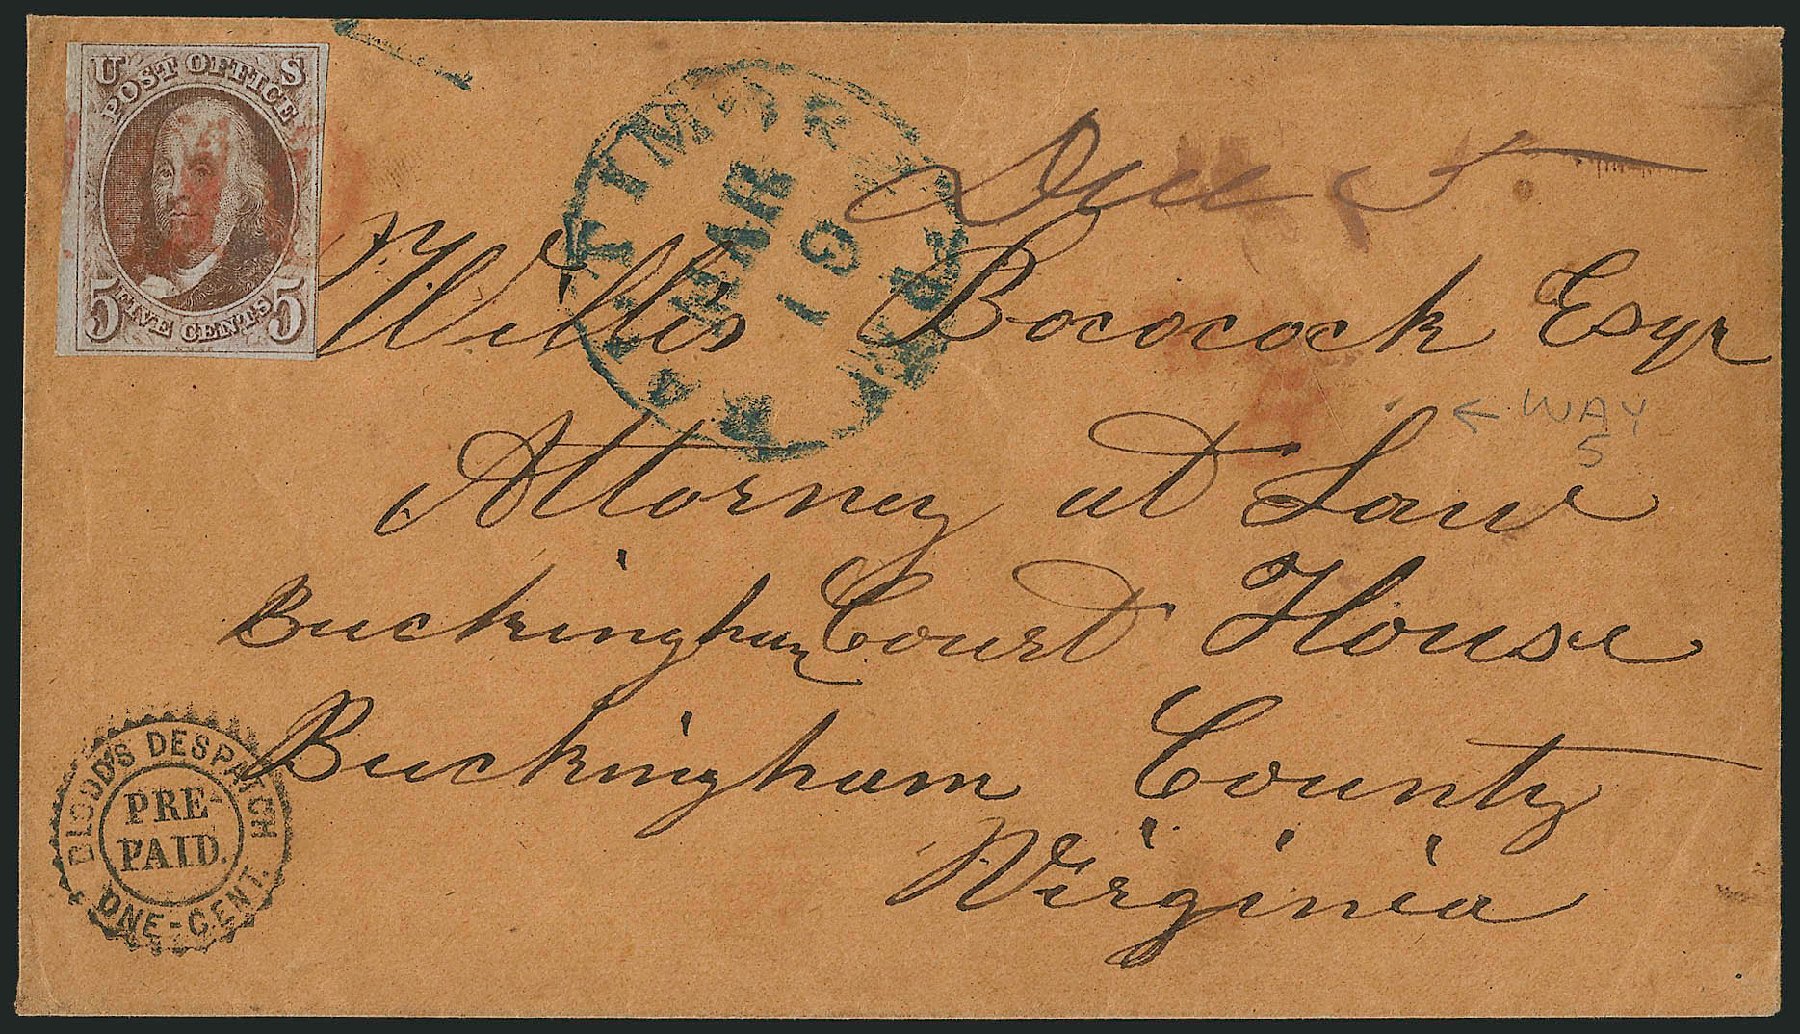 U S
POST OFFICE
5 FIVE CENTS 5
BALTIMORE Md.
MAR
19
Due 5
Willis Bococock Esqr
← WAY
5
Attorney at Law
Buckingham Court House
BLOOD'S DESPATCH
PRE-
PAID.
ONE-CENT.
Buckingham County
Virginia